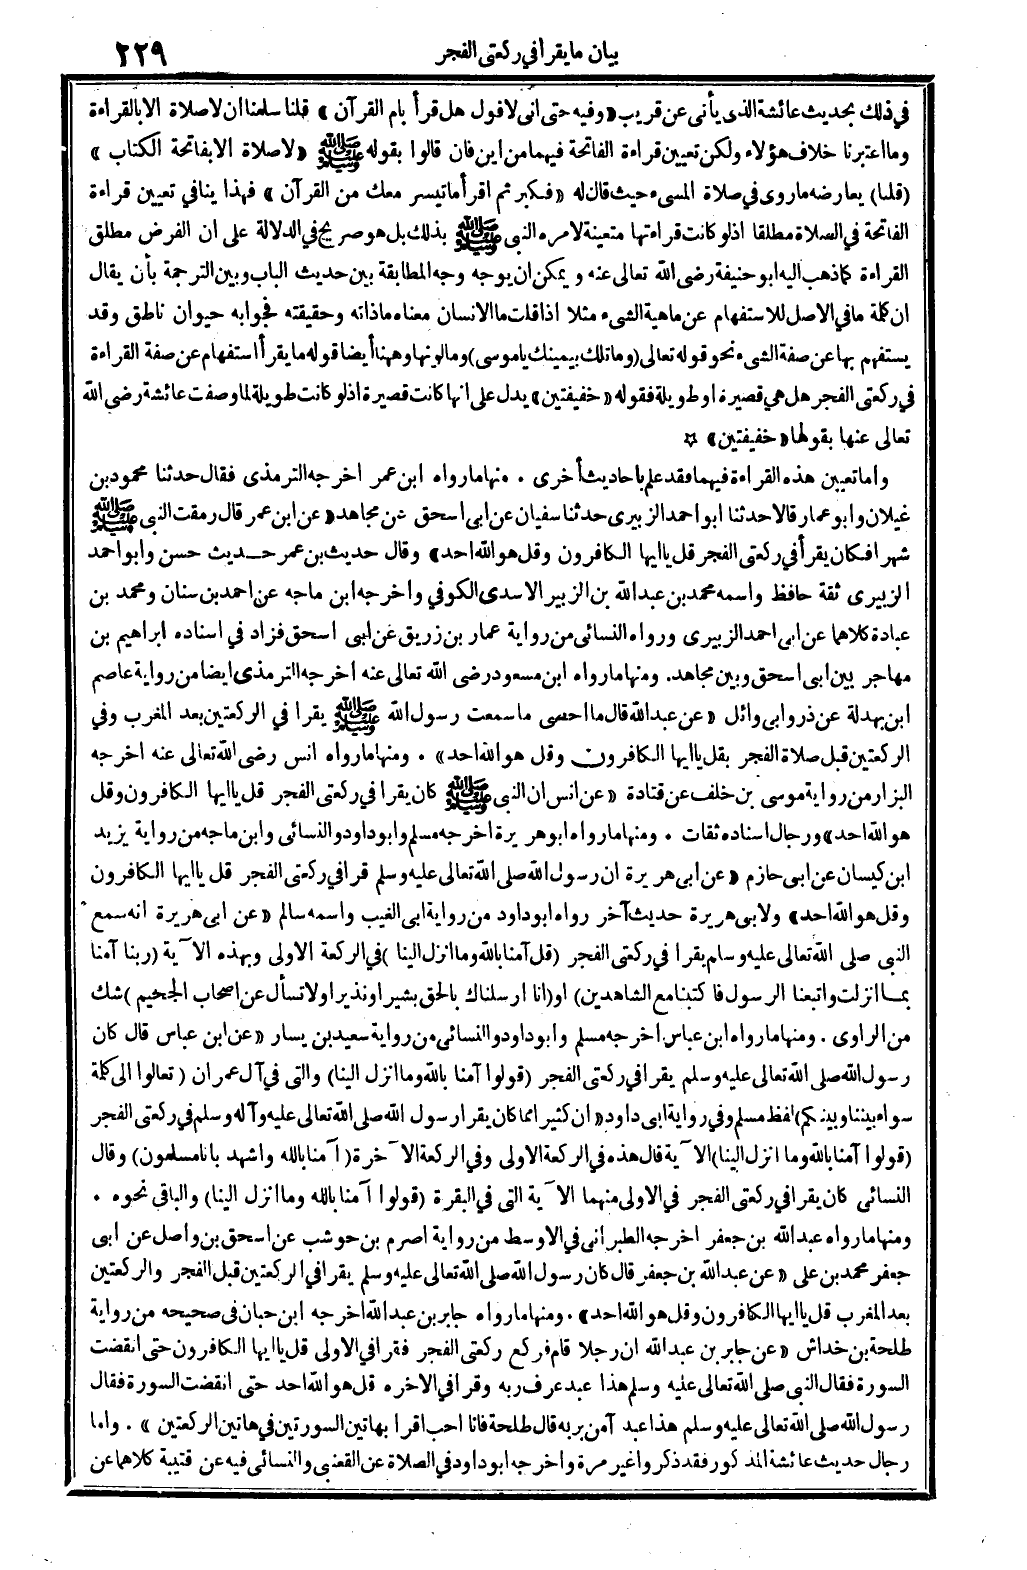 بيان ما يقرأ في ركعتي الفجر ٢٢٩
في ذلك بحديث عائشة الذى يأتى عن قريب «وفيه حتى انى لاقول هل قرأ بام القرآن» قلنا سلمنا ان لا صلاة الا بالقراءة
وما اعتبرنا خلاف هؤلاء ولكن تعيين قراءة الفاتحة فيهما من اين فان قالوا بقوله ﷺ «لا صلاة الا بفاتحة الكتاب»
(قلنا) يعارضه ما روى في صلاة المسىء حيث قال له «فكبر ثم اقرأ ما تيسر معك من القرآن» فهذا ينافي تعيين قراءة
الفاتحة في الصلاة مطلقا اذ لو كانت قراءتها متعينة لامره النبى ﷺ بذلك بل هو صريح في الدلالة على ان الفرض مطلق
القراءة كما ذهب اليه ابو حنيفة رضى الله تعالى عنه و يمكن ان يوجه وجه المطابقة بين حديث الباب وبين الترجمة بأن يقال
ان كلمة ما في الاصل للاستفهام عن ماهية الشىء مثلا اذا قلت ما الانسان معناه ما ذاته وحقيقته فجوابه حيوان ناطق وقد
يستفهم بها عن صفة الشىء نحو قوله تعالى (وما تلك بيمينك يا موسى) وما لونها وههنا أيضا قوله ما يقرأ استفهام عن صفة القراءة
في ركعتى الفجر هل هي قصيرة او طويلة فقوله «خفيفتين» يدل على انها كانت قصيرة اذ لو كانت طويلة لما وصفت عائشة رضى الله
تعالى عنها بقولها «خفيفتين» ☆
واما تعيين هذه القراءة فيهما فقد علم باحاديث أخرى . منها ما رواه ابن عمر اخرجه الترمذى فقال حدثنا محمود بن
غيلان وابو عمار قالا حدثنا ابو احمد الزبيرى حدثنا سفيان عن ابى اسحق عن مجاهد «عن ابن عمر قال رمقت النبى ﷺ
شهرا فكان يقرأ في ركعتى الفجر قل يا ايها الكافرون وقل هو الله احد» وقال حديث بن عمر حديث حسن وابو احمد
الزبيرى ثقة حافظ واسمه محمد بن عبد الله بن الزبير الاسدى الكوفي واخرجه ابن ماجه عن احمد بن سنان ومحمد بن
عبادة كلاهما عن ابى احمد الزبيرى ورواه النسائى من رواية عمار بن زريق عن ابى اسحق فزاد في اسناده ابراهيم بن
مهاجر بين ابى اسحق وبين مجاهد. ومنها ما رواه ابن مسعود رضى الله تعالى عنه اخرجه الترمذى ايضا من رواية عاصم
ابن بهدلة عن ذر وابى وائل «عن عبد الله قال ما احصى ما سمعت رسول الله ﷺ يقرا في الركعتين بعد المغرب وفي
الركعتين قبل صلاة الفجر بقل يا ايها الكافرون وقل هو الله احد» . ومنها ما رواه انس رضى الله تعالى عنه اخرجه
البزار من رواية موسى بن خلف عن قتادة «عن انس ان النبى ﷺ كان يقرا في ركعتى الفجر قل يا ايها الكافرون وقل
هو الله احد» ورجال اسناده ثقات . ومنها ما رواه ابو هريرة اخرجه مسلم وابو داود والنسائى وابن ماجه من رواية يزيد
ابن كيسان عن ابى حازم «عن ابى هريرة ان رسول الله صلى الله تعالى عليه وسلم قرا في ركعتى الفجر قل يا ايها الكافرون
وقل هو الله احد» ولابى هريرة حديث آخر رواه ابو داود من رواية ابى الغيب واسمه سالم «عن ابى هريرة انه سمع
النبى صلى الله تعالى عليه وسلم يقرا في ركعتى الفجر (قل آمنا بالله وما انزل الينا) في الركعة الاولى وبهذه الآية (ربنا آمنا
بما انزلت واتبعنا الرسول فاكتبنا مع الشاهدين) او (انا ارسلناك بالحق بشيرا ونذيرا ولا تسأل عن اصحاب الجحيم) شك
من الراوى . ومنها ما رواه ابن عباس اخرجه مسلم وابو داود والنسائى من رواية سعيد بن يسار «عن ابن عباس قال كان
رسول الله صلى الله تعالى عليه وسلم يقرا في ركعتى الفجر (قولوا آمنا بالله وما انزل الينا) والتى في آل عمران (تعالوا الى كلمة
سواء بيننا وبينكم) لفظ مسلم وفي رواية ابى داود «ان كثيرا مما كان يقرا رسول الله صلى الله تعالى عليه وآله وسلم في ركعتى الفجر
(قولوا آمنا بالله وما انزل الينا) الآية قال هذه في الركعة الاولى وفي الركعة الآخرة (آمنا بالله واشهد بانا مسلمون) وقال
النسائى كان يقرا في ركعتى الفجر في الاولى منهما الآية التى في البقرة (قولوا آمنا بالله وما انزل الينا) والباقى نحوه .
ومنها ما رواه عبد الله بن جعفر اخرجه الطبرانى في الاوسط من رواية اصرم بن حوشب عن اسحق بن واصل عن ابى
جعفر محمد بن على «عن عبد الله بن جعفر قال كان رسول الله صلى الله تعالى عليه وسلم يقرا في الركعتين قبل الفجر والركعتين
بعد المغرب قل يا ايها الكافرون وقل هو الله احد» . ومنها ما رواه جابر بن عبد الله اخرجه ابن حبان في صحيحه من رواية
طلحة بن خداش «عن جابر بن عبد الله ان رجلا قام فركع ركعتى الفجر فقرا في الاولى قل يا ايها الكافرون حتى انقضت
السورة فقال النبى صلى الله تعالى عليه وسلم هذا عبد عرف ربه وقرا في الاخره قل هو الله احد حتى انقضت السورة فقال
رسول الله صلى الله تعالى عليه وسلم هذا عبد آمن بربه قال طلحة فانا احب اقرا بهاتين السورتين في هاتين الركعتين» . واما
رجال حديث عائشة المذكور فقد ذكروا غير مرة واخرجه ابو داود في الصلاة عن القعنبى والنسائى فيه عن قتيبة كلاهما عن